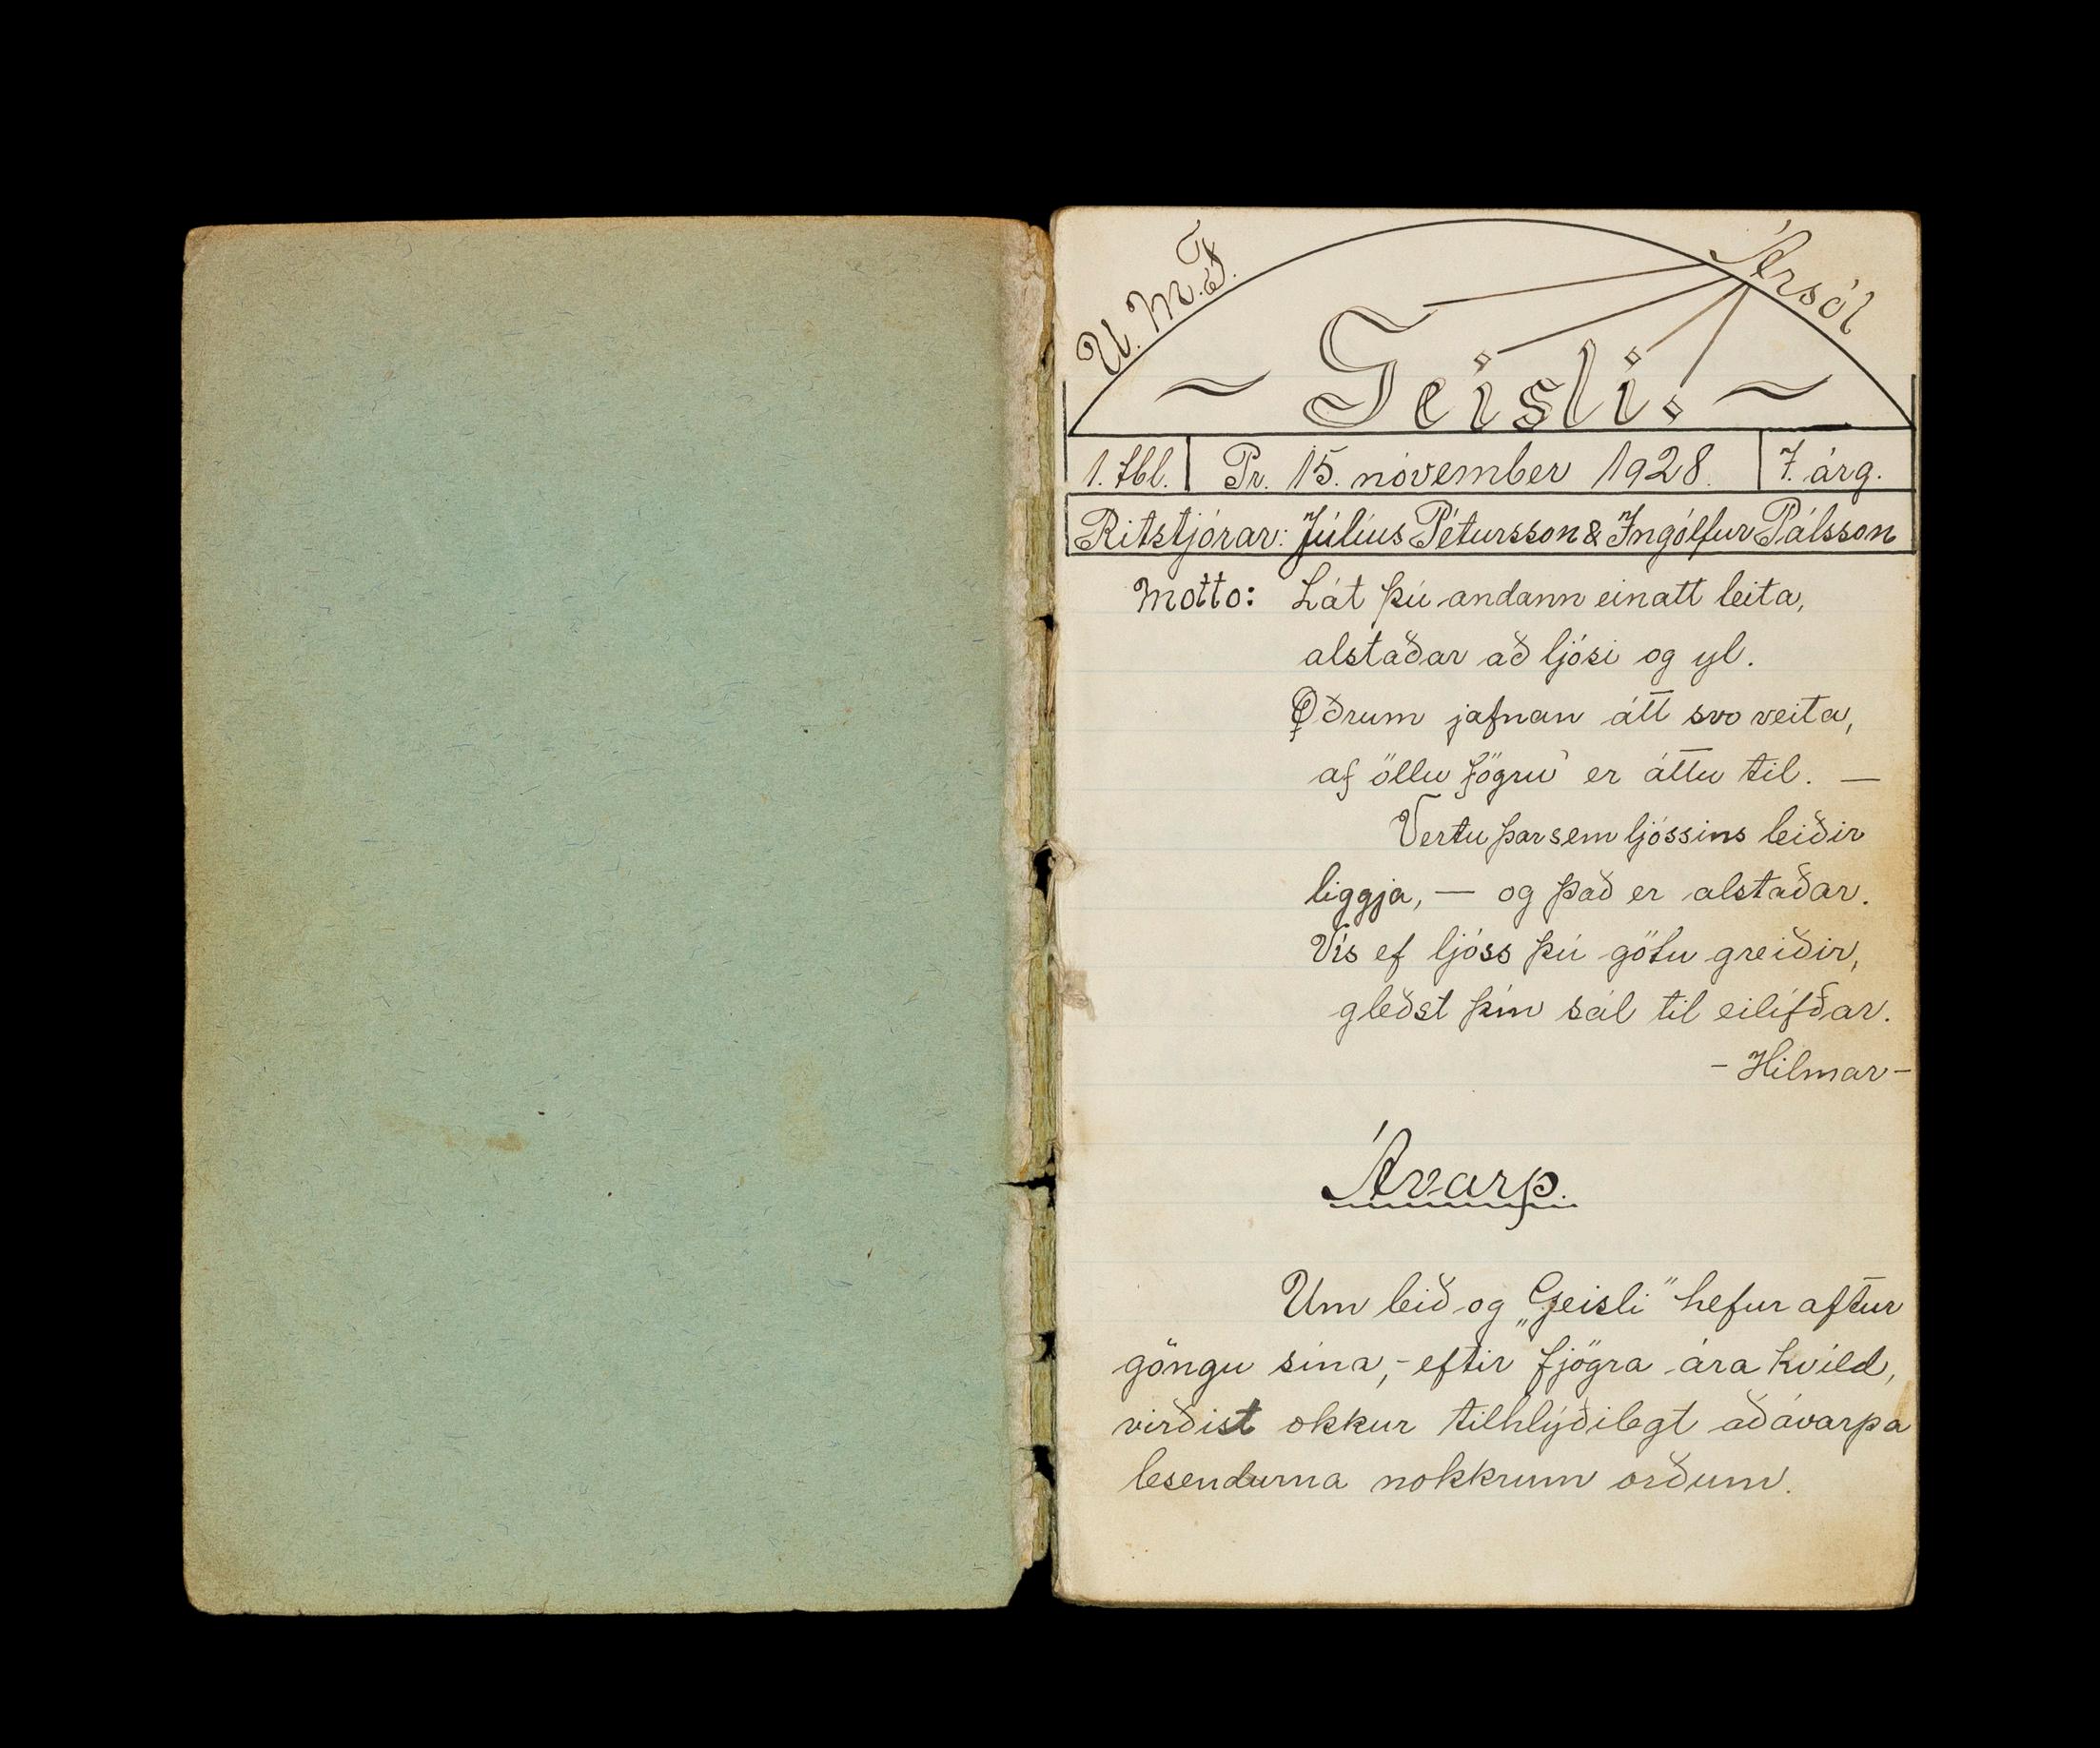 U. M. F. Ársól
~ Geisli. ~
1. tbl. Pr. 15. nóvember 1928. 7. árg.
Ritstjórar: Júlíus Pétursson & Ingólfur Pálsson
Motto: Lát þú andann einatt leita,
alstaðar að ljósi og yl.
Öðrum jafnan átt svo veita,
af öllu fögru er áttu til. —
Vertu þar sem ljóssins leiðir
liggja, — og það er alstaðar.
Vís ef ljóss þú götu greiðir,
gleðst þín sál til eilífðar.
- Hilmar -
Ávarp.
Um leið og „Geisli" hefur aftur
göngu sína, - eftir fjögra ára hvíld,
virðist okkur tilhlýðilegt að ávarpa
lesendurna nokkrum orðum.